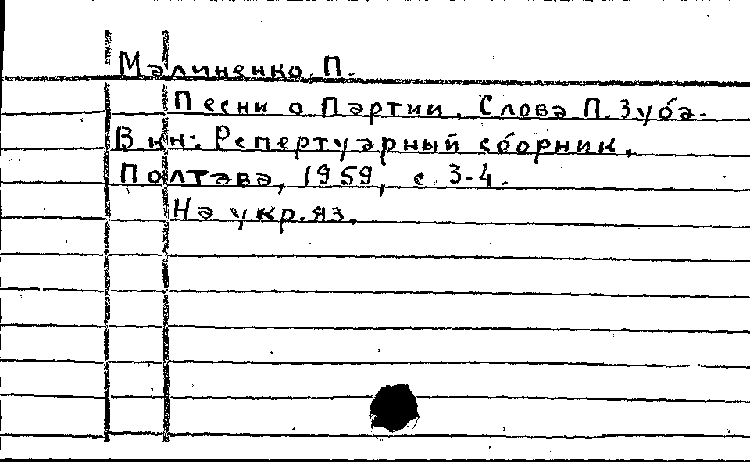 Малиненко, П.
Песни о Партии. Слова П. Зуба.
В кн: Репертуарный сборник.
Полтава, 1959, с. 3-4.
На укр. яз.